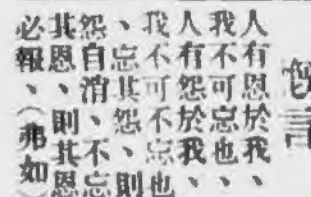 言
人有恩於我、
我不可忘也、
人有怨於我、
我不可不忘也
、忘其怨、則
怨自消、不忘
其恩、則其恩
必報、、(弗如)